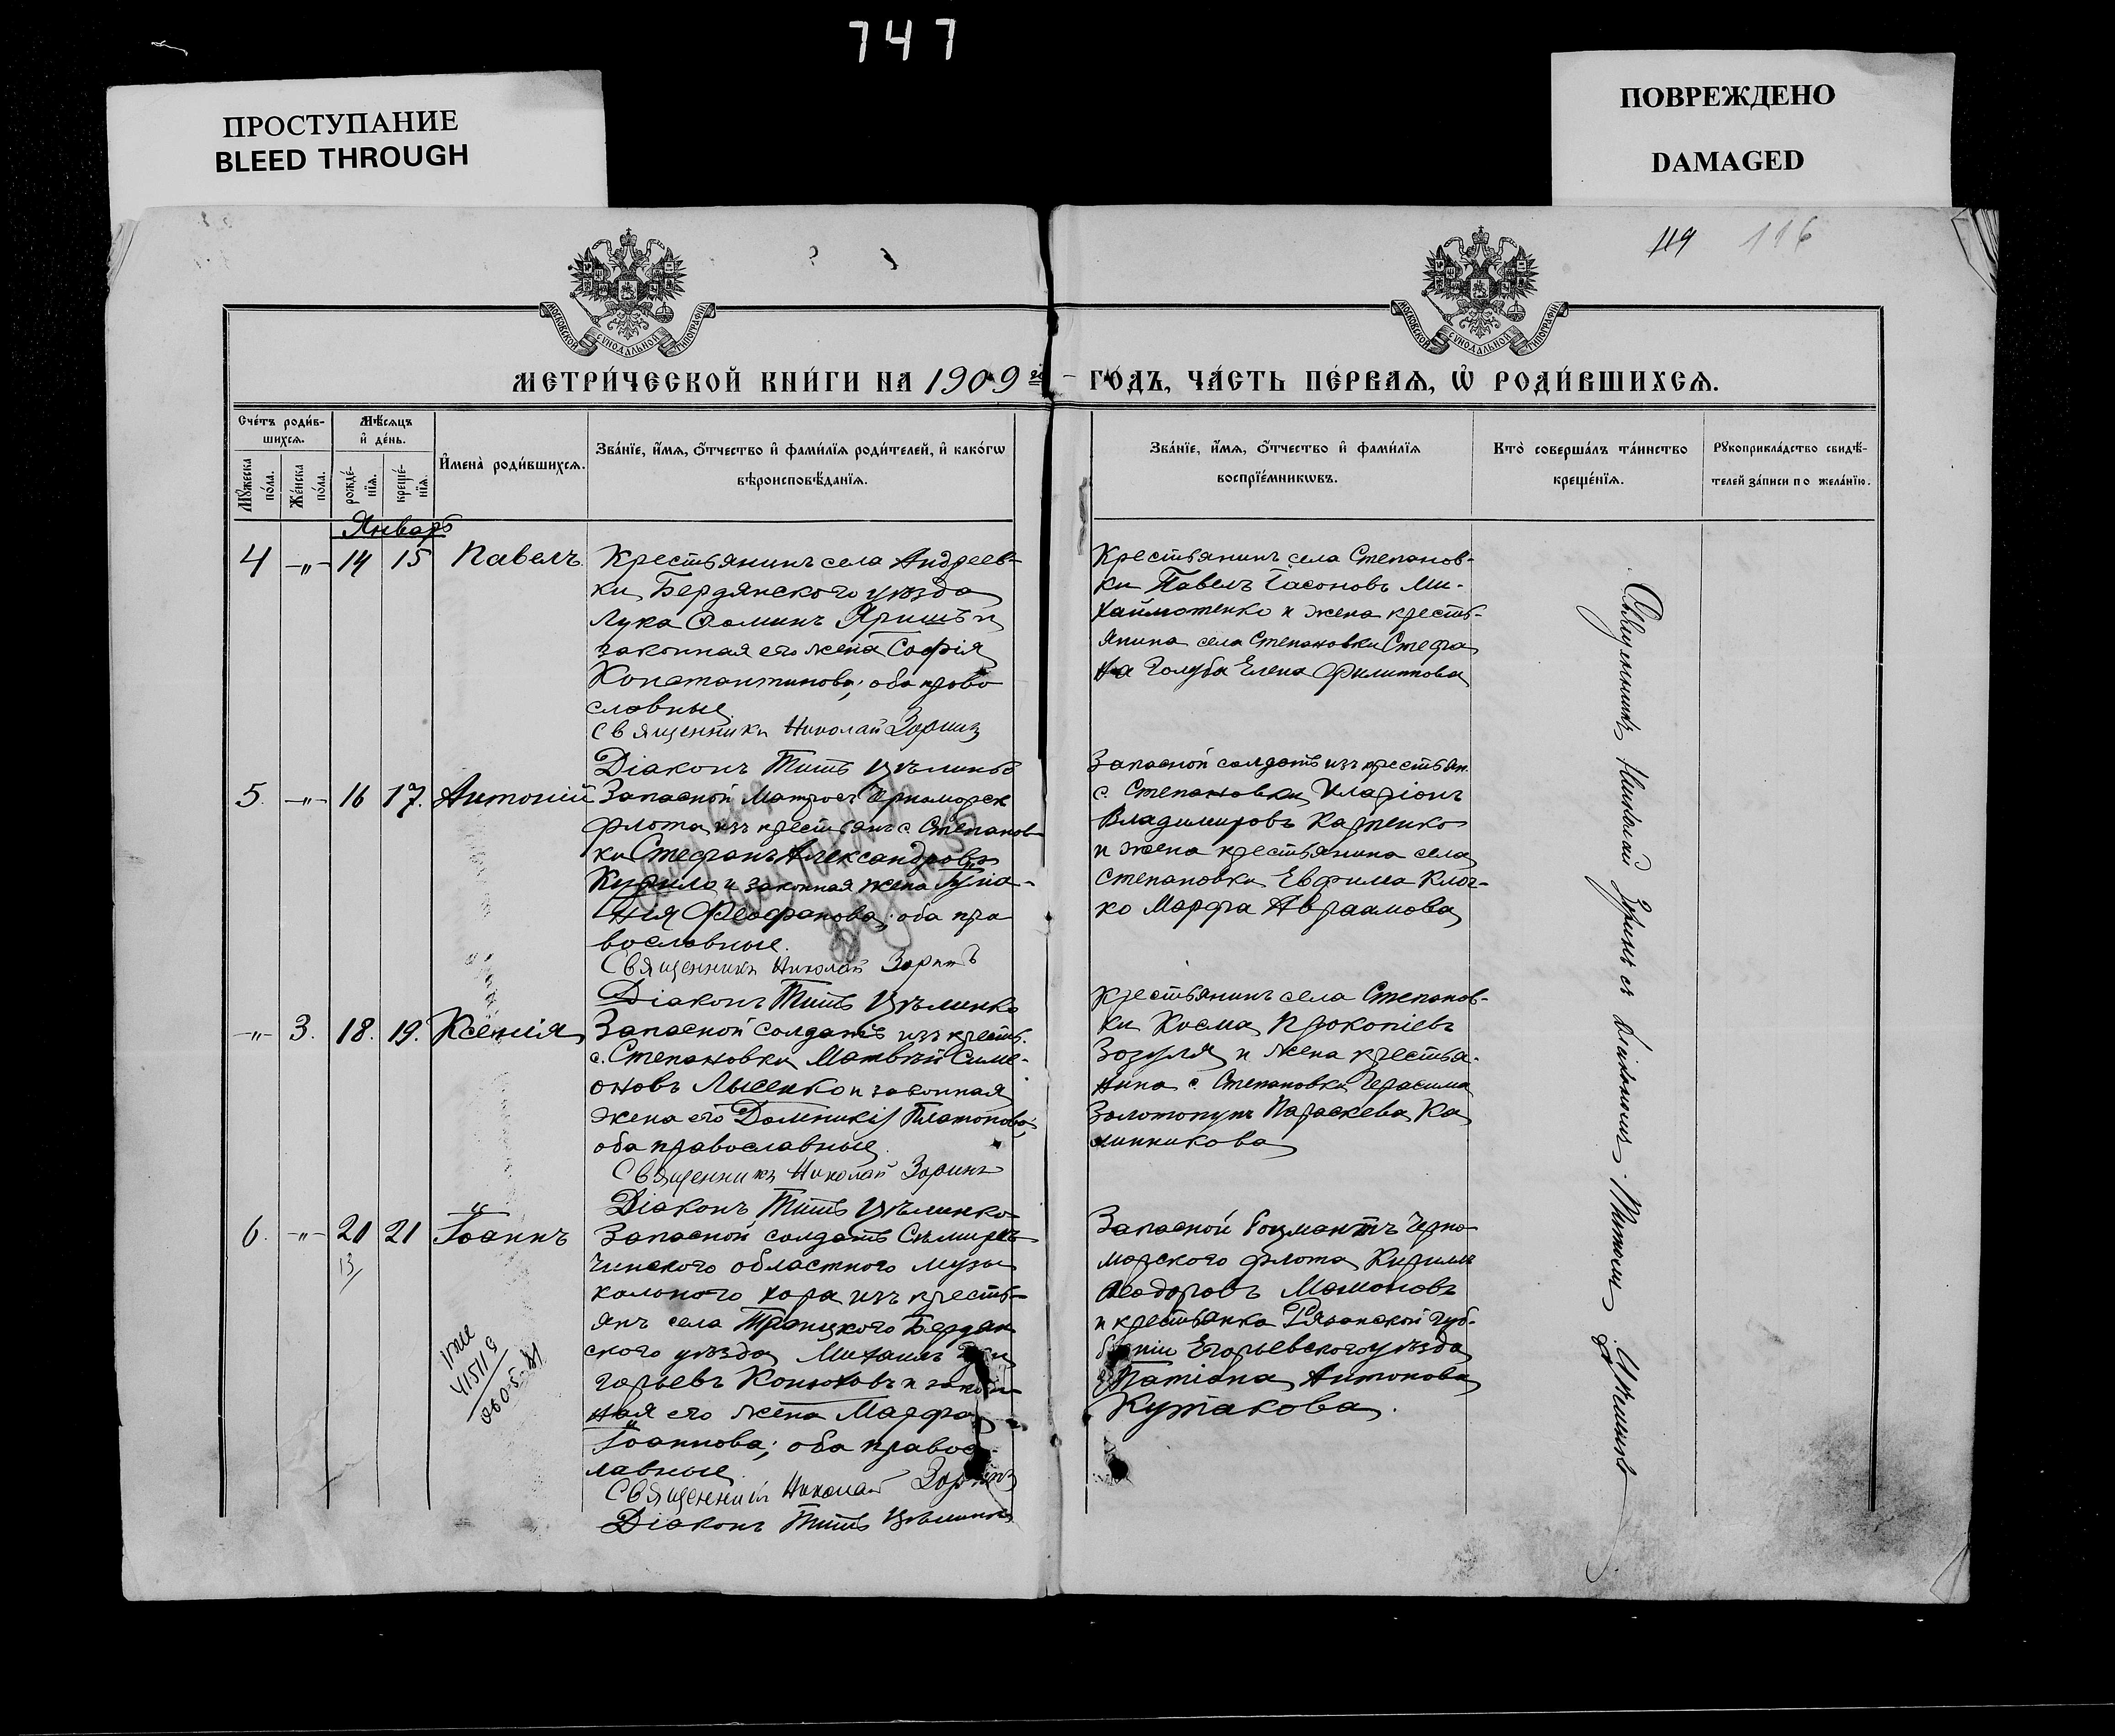 747
ПРОСТУПАНИЕ
BLEED THROUGH
ПОВРЕЖДЕНО
DAMAGED
119 116
МОСКОВСКОЙ СѴНОДАЛЬНОЙ ТИПОГРАФІИ
МОСКОВСКОЙ СѴНОДАЛЬНОЙ ТИПОГРАФІИ
МЕТРИ́ЧЕСКОЙ КНИ́ГИ НА 1909 й ГО́ДЪ, ЧА́СТЬ ПЕ́РВАѦ, Ѡ҆ РОДИ́ВШИХСѦ.
Сче́тъ роди́в-
шихсѧ.
Мꙋ́жеска по́ла.
Же́нска по́ла.
Мѣ́сѧцъ
и҆ де́нь.
рожде́-
нїѧ.
креще́-
нїѧ.
И҆мена̀ роди́вшихсѧ.
Зва́нїе, и҆́мѧ, ѻ҆́тчество и҆ фами́лїѧ роди́телей, и҆ како́гѡ
вѣроисповѣ́данїѧ.
Зва́нїе, и҆́мѧ, ѻ҆́тчество и҆ фами́лїѧ
воспрїе́мникѡвъ.
Кто̀ соверша́лъ та́инство
креще́нїѧ.
Рꙋкоприкла́дство свидѣ́-
телей за́писи по жела́нїю.
Январь
4 -"- 14 15 Павелъ
Крестьянинъ села Андреев-
ки, Бердянскаго уѣзда
Лука Ѳоминъ Яришъ и
законная его жена Софія
Константинова; оба право
славные
Священникъ Николай Зоринъ
Діаконъ Титъ Цѣлинько
Крестьянинъ села Степанов-
ки Павелъ Іасоновъ Ми-
хайлютенко и жена кресть-
янина села Степановки Стефа
на Голуба Елена Филиппова
5. -"- 16 17. Антоній
Запасной Матросъ Черноморск
флота, изъ крестьянъ с. Степанов
ки Стефанъ Александровъ
Курило и законная жена
Феофанова; оба пра
вославные.
Священникъ Николай Зоринъ
Діаконъ Титъ Цѣлинько
Запасной солдатъ изъ крестьян.
с. Степановки Иларіонъ
Владимировъ Карпенко
и жена крестьянина села
Степановки Евфима Клоч-
ко Марфа Авраамова
-"- 3. 18. 19. Ксенія
Запасной солдатъ изъ крест.
с. Степановки Матвѣй Симе-
оновъ Лысенко и законная
жена его Домникія Платонова;
оба православные
Священникъ Николай Зоринъ
Діаконъ Титъ Цѣлинько
Крестьянинъ села Степанов-
ки Косма Прокопіевъ
Зозуля и жена крестья-
нина с. Степановки Герасима
Золотопупъ Параскева Ка
линникова
6. -"- 20 21 Іоаннъ
13/
Запасной солдатъ Сѣмирѣ-
ченского областного музы
кального хора изъ кресть-
янъ села Троицкого Бердян
ского уѣзда, Михаилъ
горьевъ Конюховъ и закон-
ная его жена Марфа
Іоаннова; оба правос-
лавные.
Священникъ Николай Зоринъ
Діаконъ Титъ Цѣлинько
Запасной боцманатъ Черно-
морского флота Кириллъ
Ѳеодоровъ Мамоновъ
и крестьянка Рязанской губ-
Егорьевского уѣзда
Татіана Антонова
Кутакова.
Священникъ Николай Зоринъ съ діакономъ Титомъ Цѣлинько